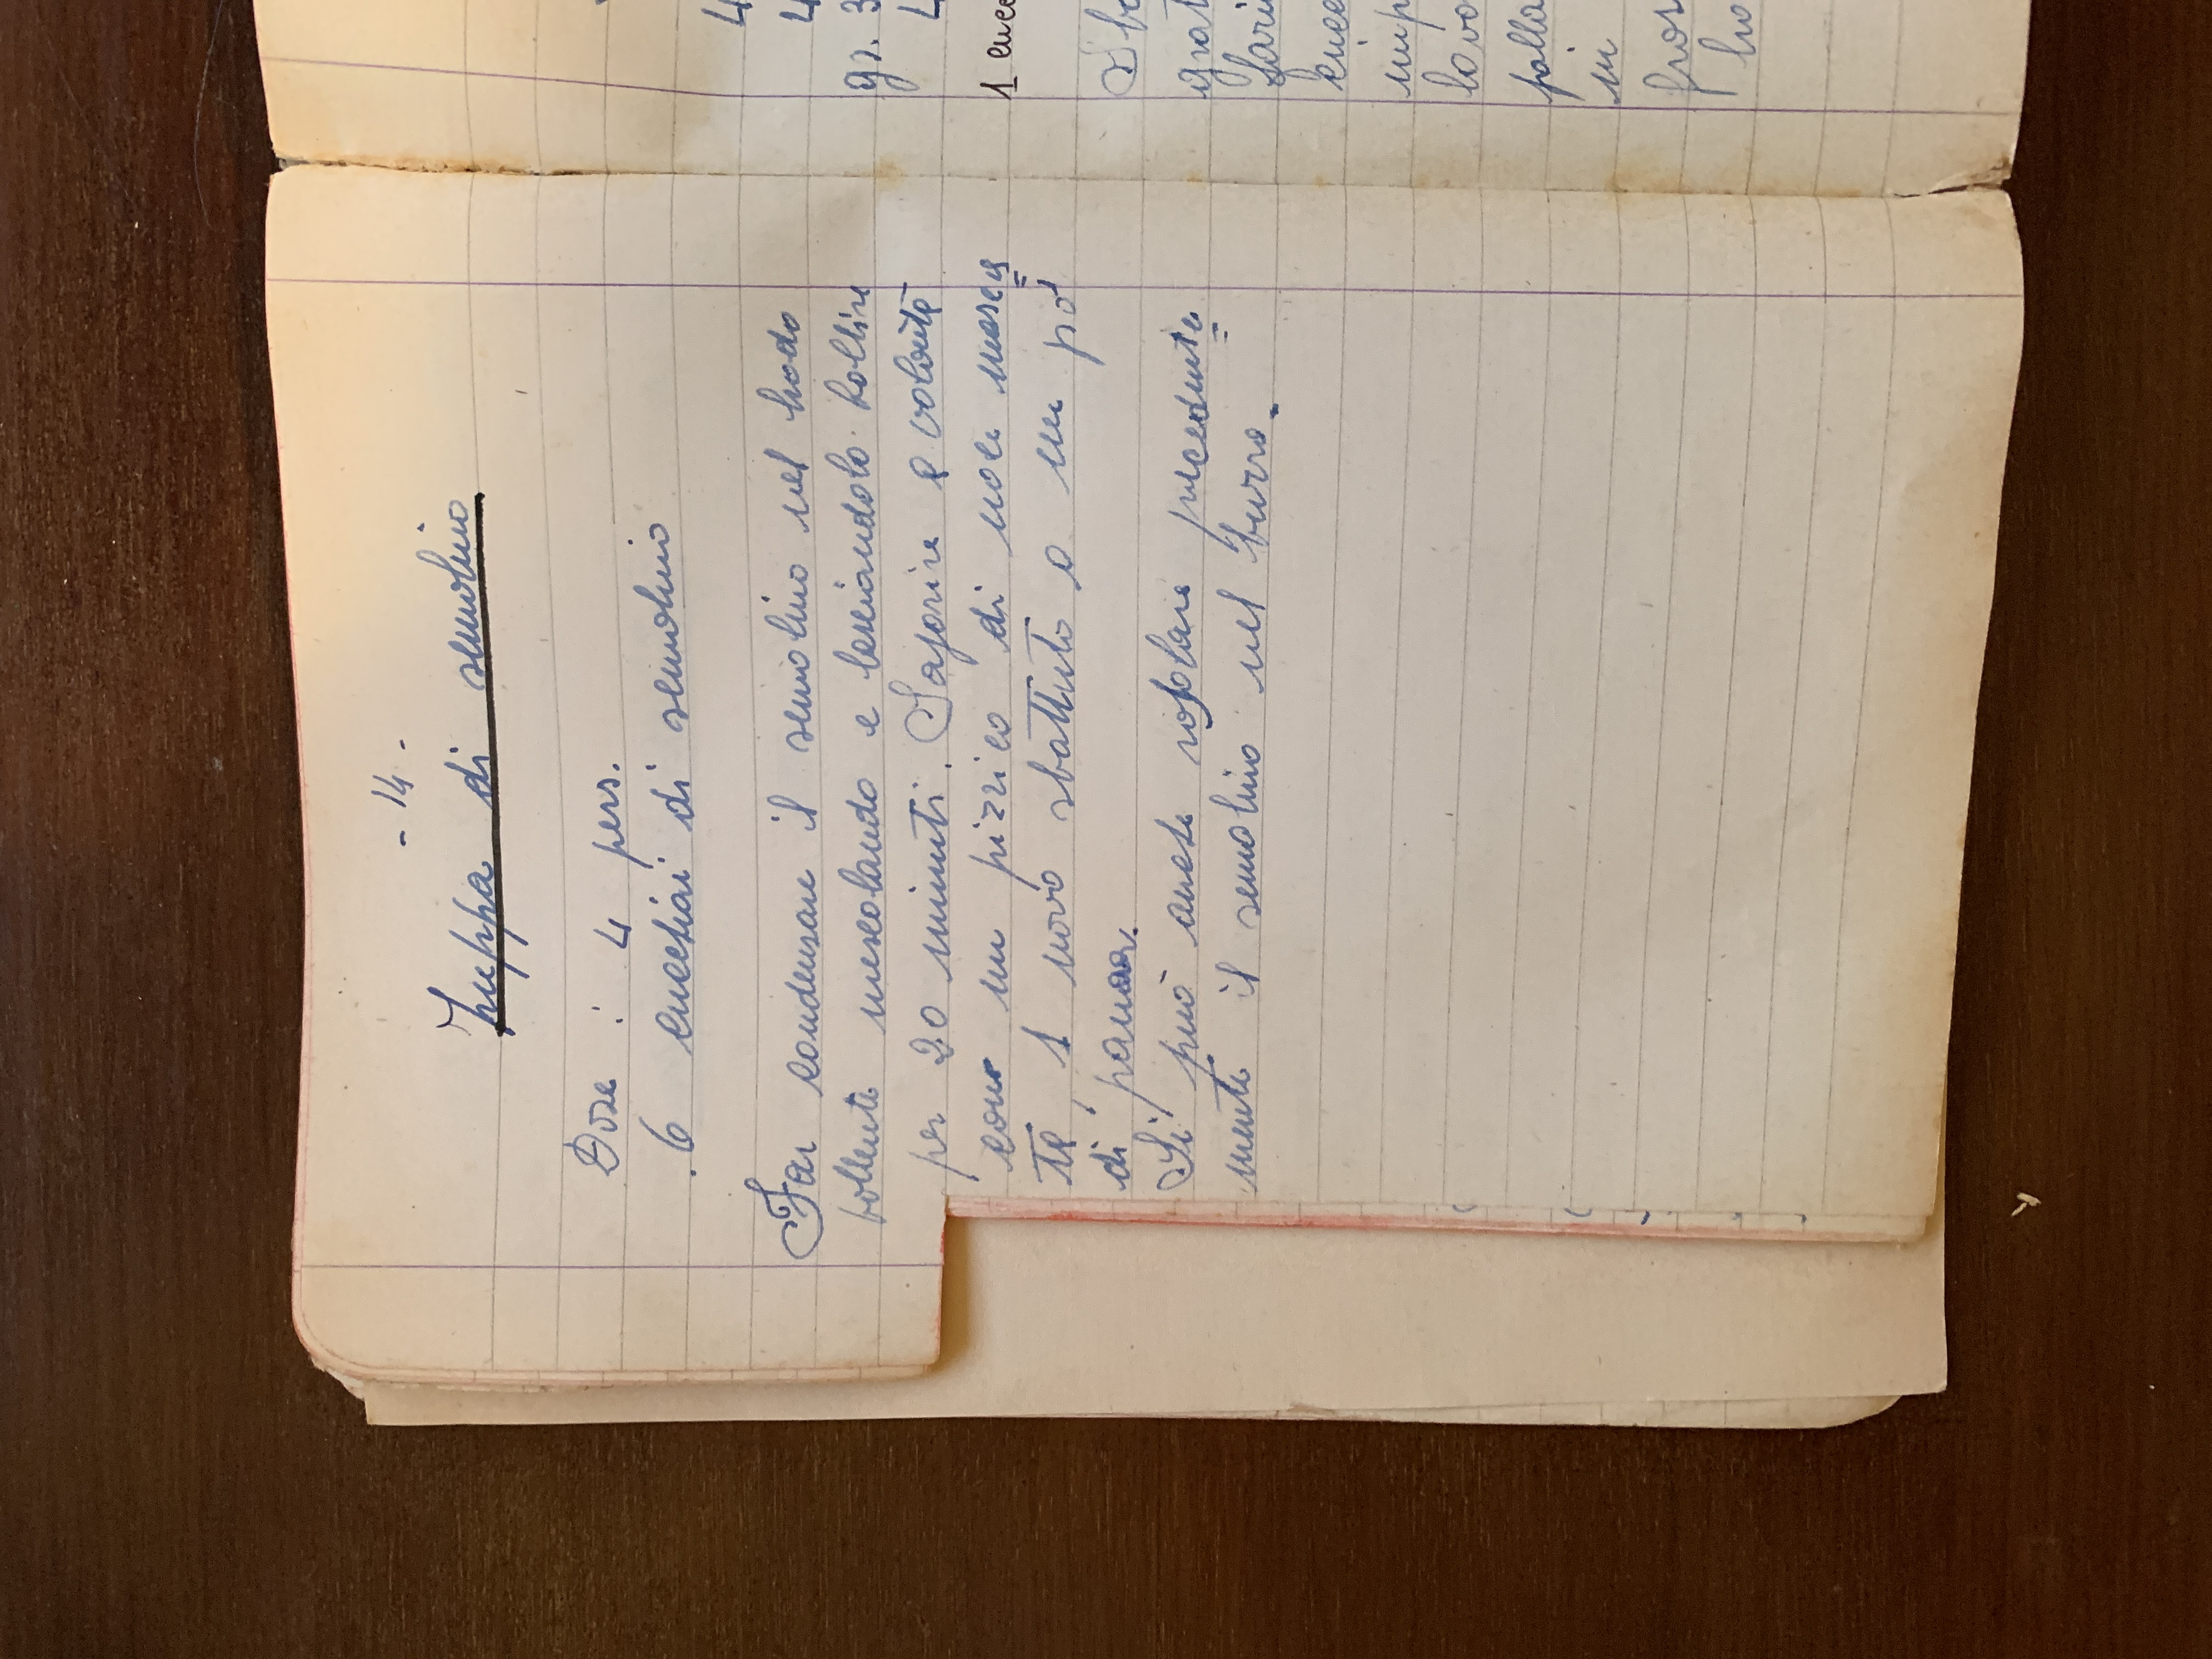 - 14 -
Zuppa di semolino
Dose : 4 pers.
. 6 cucchiai di semolino
Far condensare il semolino nel brodo
bollente mescolando e lasciandolo bollire
per 20 minuti. Saporire a volontà
con un pizzico di noce mosca
ta, 1 uovo sbattuto o un pò
di panna.
Si può anche rosolare precedente
mente il semolino nel burro.
4
4
gr. 3
4
1 cucc
Sba
grat
fari
cucc
imp
lavo
palla
in
gros
bro